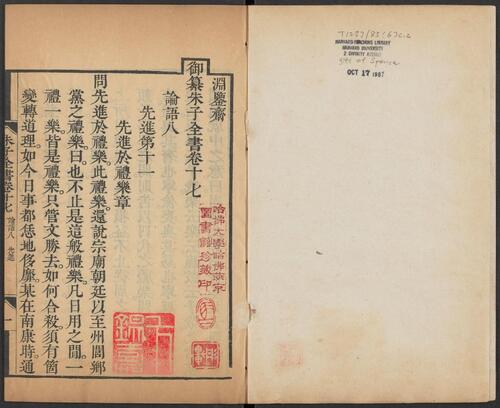 淵鑒齋
御纂朱子全書卷十七
論語八
先進第十一
先進於禮樂章
問先進於禮樂此禮樂還說宗廟朝廷以至州閭鄉
黨之禮樂曰也不止是這般禮樂凡日用之間一
禮一樂皆是禮樂只管文勝去如何合殺須有箇
變轉道理如今日事都恁地侈靡某在南康時通
朱子全書卷十七 論語八 先進 一
哈佛大學哈佛燕京
圖書館珍藏印
HARVARD-YENCHING LIBRARY
HARVARD UNIVERSITY
2 DIVINITY AVENUE
OCT 17 1987